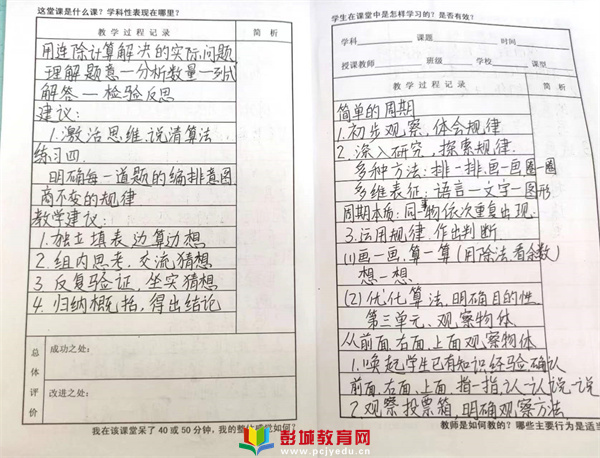 这堂课是什么课？学科性表现在哪里？
教学过程记录
简析
用连除计算解决的实际问题
理解题意一分析数量一列式
解答一检验反思
建议：
1.激活思维.说清算法
练习四.
明确每一道题的编排意图
商不变的规律
教学建议：
1.独立填表.边算边想
2.组内思考.交流.猜想
3.反复验证.坐实猜想
4.归纳概括，得出结论
总体评价
成功之处：
改进之处：
我在该课堂呆了40或50分钟，我的整体感觉如何？
学生在课堂中是怎样学习的？是否有效？
学科 课题 时间
授课教师 班级 学校 课型
教学过程记录
简析
简单的周期
1.初步观察，体会规律
2.深入研究，探索规律.
多种方法：排一排.画一画.圈一圈
多维表征：语言一文字一图形
周期本质：同一事物依次重复出现.
3.运用规律.作出判断
(1)画一画.算一算（用除法.看余数）
想一想.
(2)优化算法.明确目的性
第三单元、观察物体
从前面.右面.上面观察物体
1.唤起学生已有知识经验确认
前面.右面.上面.指一指，认一认说一说
2.观察投票箱，明确观察方法
教师是如何教的？哪些主要行为是适当
彭城教育网
www.pcjyedu.cn